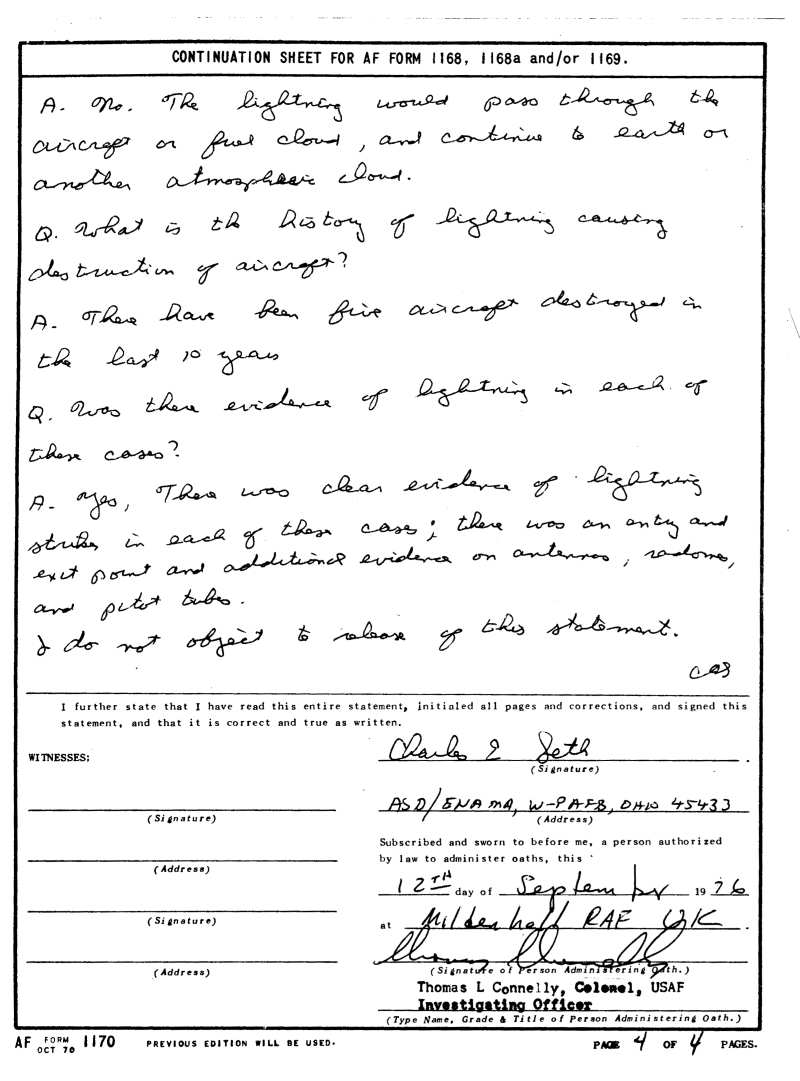 CONTINUATION SHEET FOR AF FORM 1168, 1168a and/or 1169.
A. No. The lightning would pass through the
aircraft or fuel cloud, and continue to earth or
another atmospheric cloud.
Q. What is the history of lightning causing
destruction of aircraft?
A. There have been five aircraft destroyed in
the last 10 years
Q. Was there evidence of lightning in each of
these cases?
A. Yes, There was clear evidence of lightning
strikes in each of these cases; there was an entry and
exit point and additional evidence on antennas, radome,
and pitot tubes.
I do not object to release of this statement.
CES
I further state that I have read this entire statement, initialed all pages and corrections, and signed this
statement, and that it is correct and true as written.
WITNESSES:
Charles E Seth
(Signature)
ASD/ENAMA, W-PAFB, OHIO 45433
(Signature)
(Address)
Subscribed and sworn to before me, a person authorized
by law to administer oaths, this
(Address)
12TH day of September 1976
(Signature)
at Mildenhall RAF UK.
(Address)
(Signature of Person Administering Oath.)
Thomas L Connelly, Colonel, USAF
Investigating Officer
(Type Name, Grade & Title of Person Administering Oath.)
AF FORM OCT 70 1170 PREVIOUS EDITION WILL BE USED. PAGE 4 OF 4 PAGES.